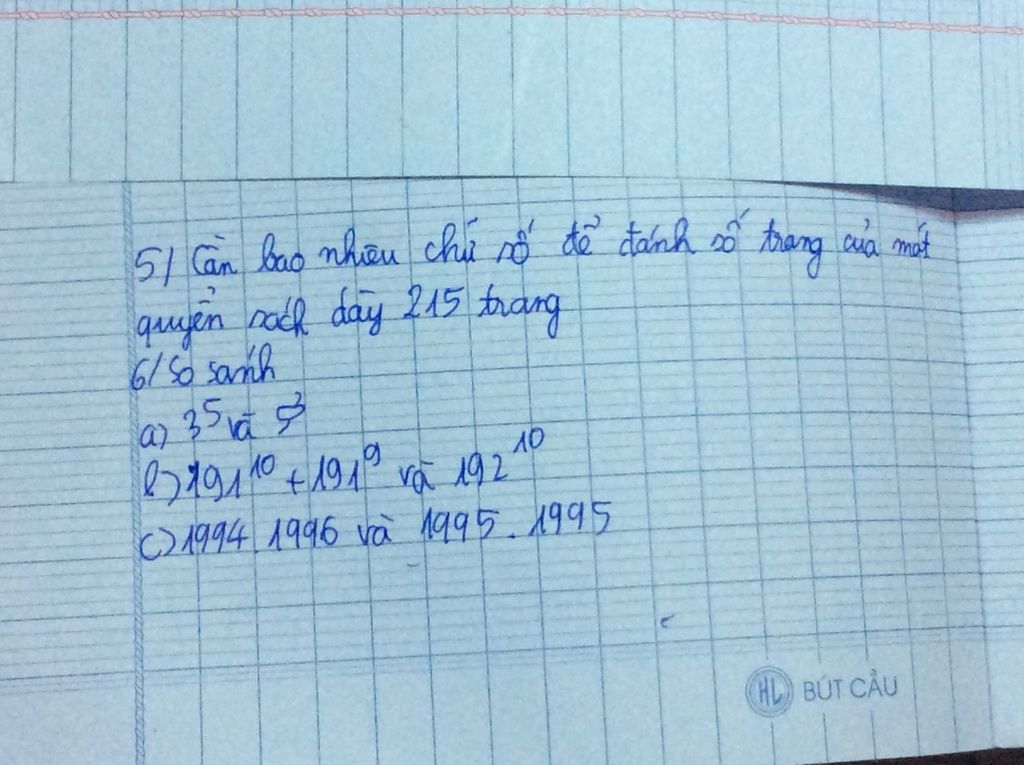 5/ Cần bao nhiêu chữ số để đánh số trang của một
quyển sách dày 215 trang
6/ So sánh
a) 3⁵ và 5³
b) 191¹⁰ + 191⁹ và 192¹⁰
c) 1994. 1996 và 1995. 1995
HL BÚT CẦU